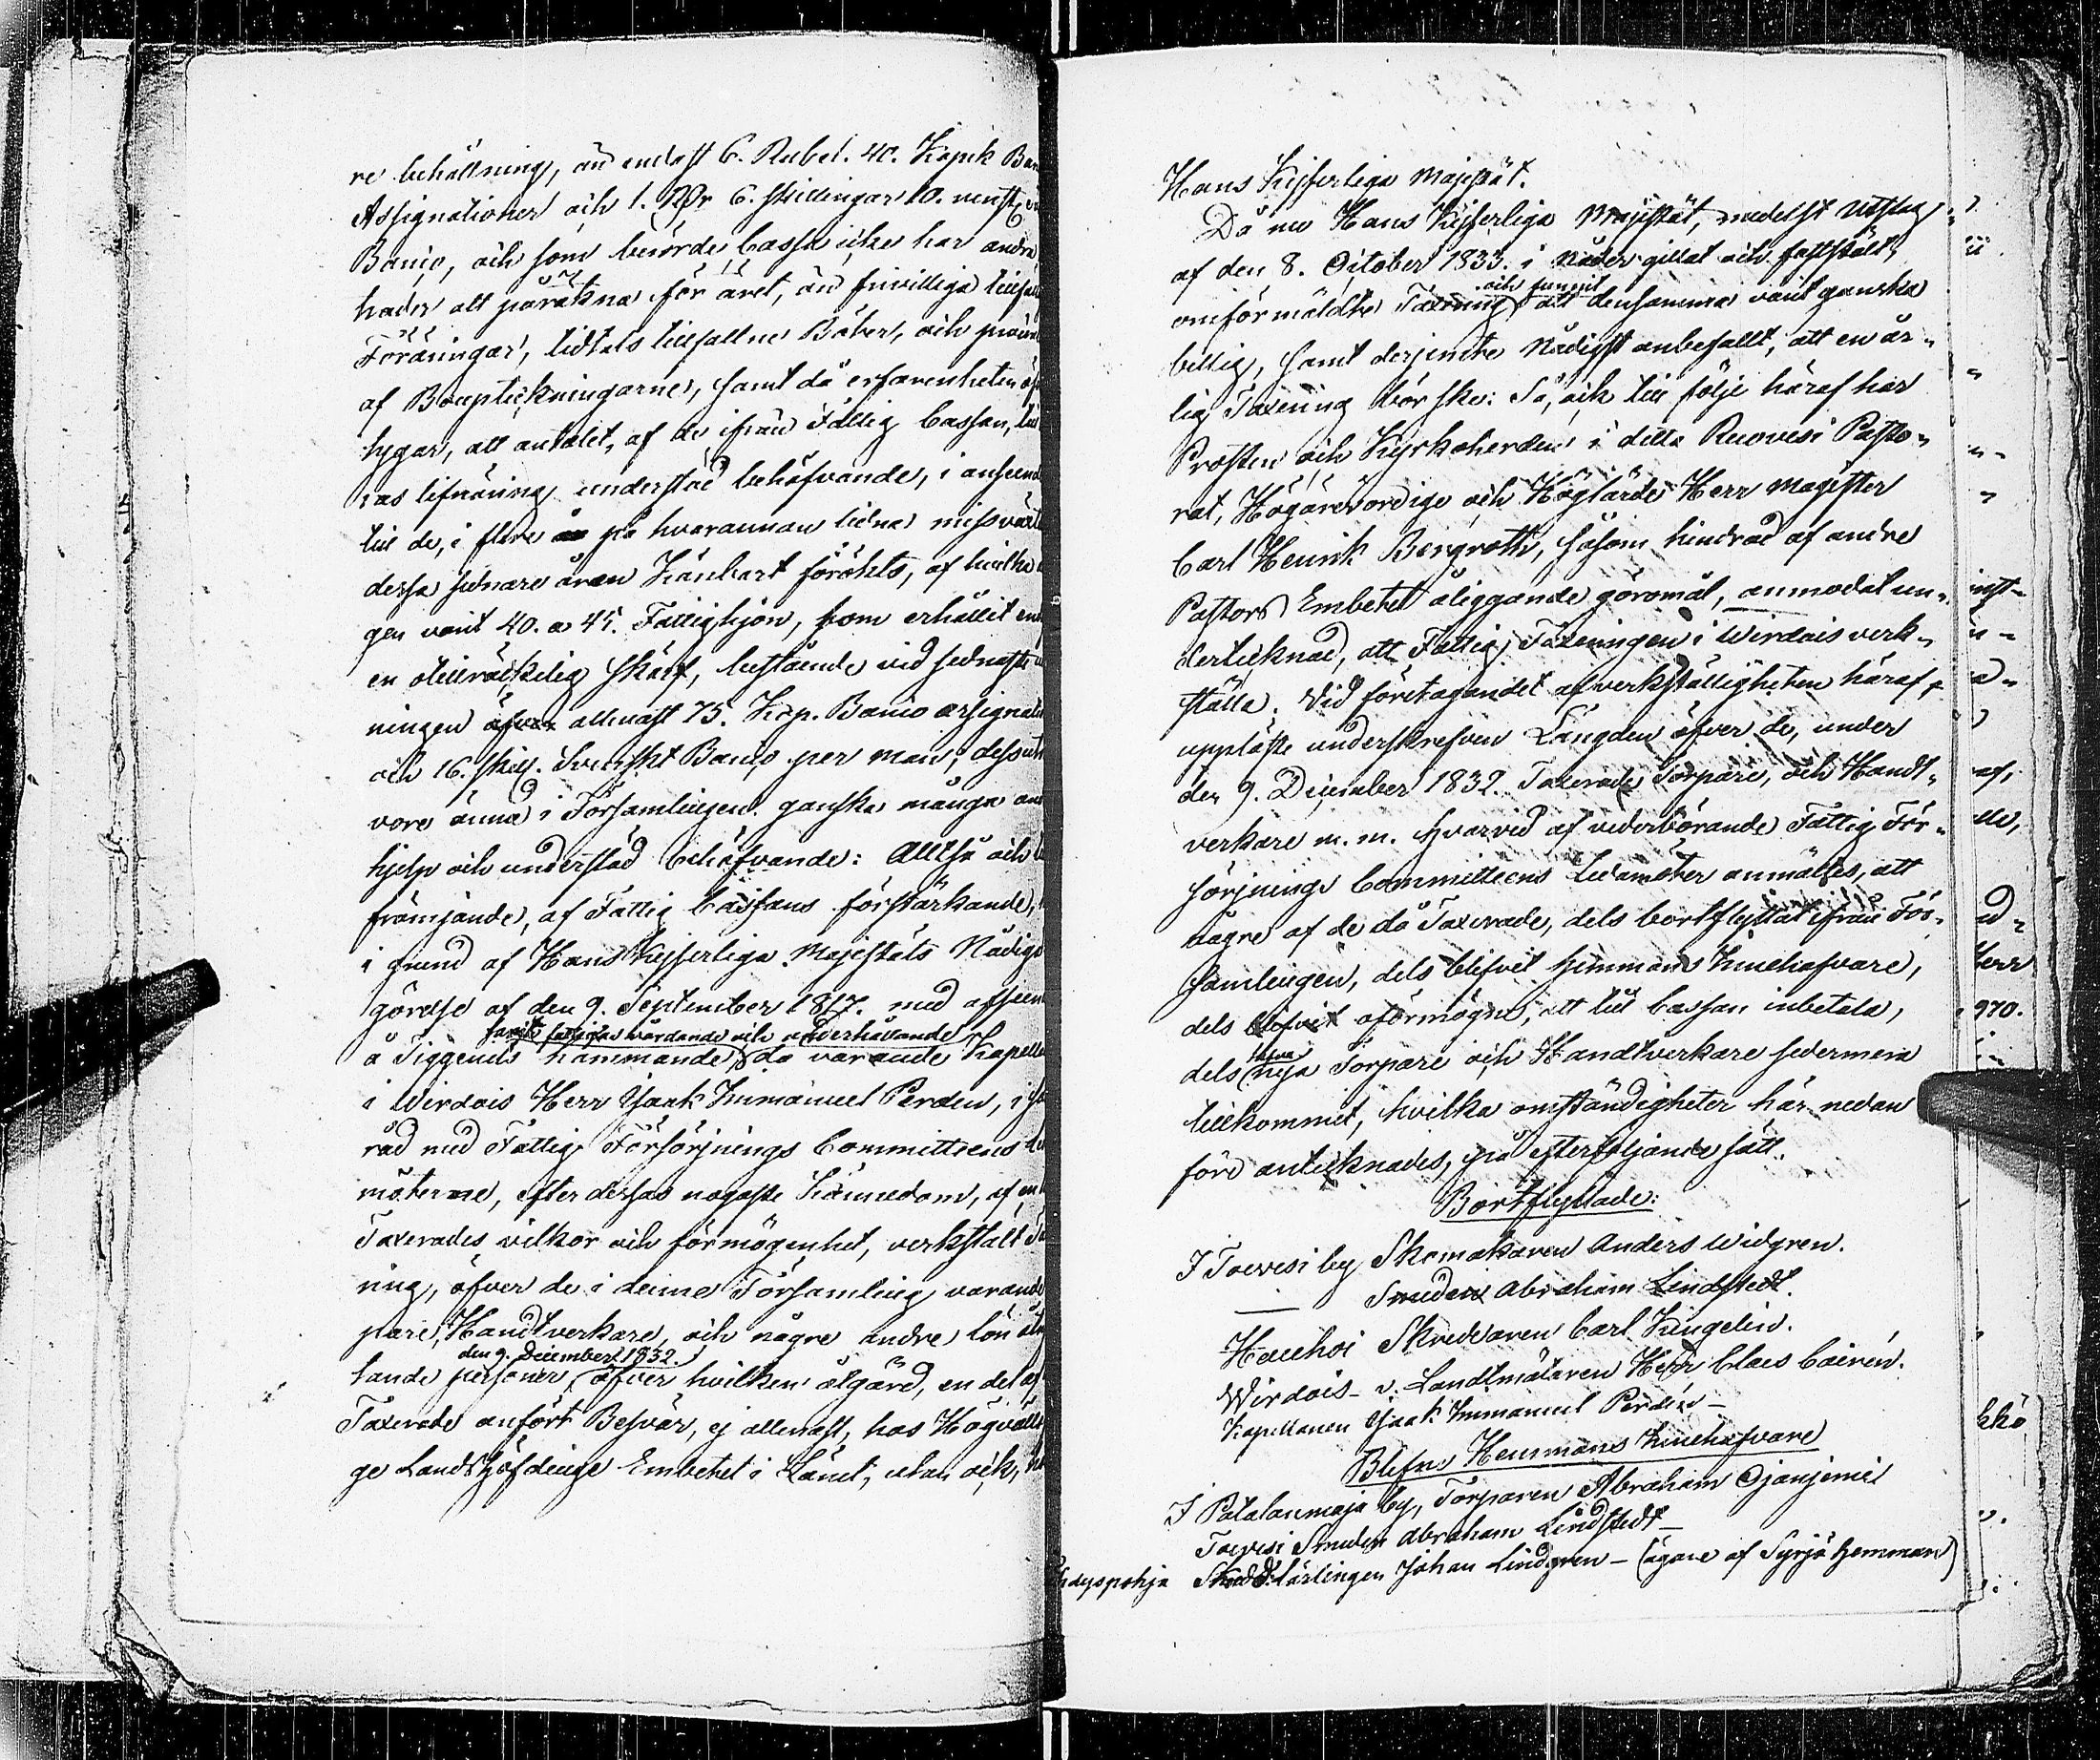 re behållning, än endast 6. Rubel. 40. Kopek Ban
Assignationer och 1. RDr 6. skillingar 10. runst.
Banco, och som berörde Cassa icke har andra
hader att påräkna för året, än frivilliga tillfäll
Föräningar, tidtals tillfallne Böter, och procent
af Boupteckningarne, samt då erfarenheten
tygar, att antalet, af de ifrån Fattig Cassan,
ras lifnäring understöd behöfvande, i anseend
till de, i flere på hvarannan lidna missväxt
dessa sednare åren Känbart förökts, af hvilka
gen varit 40. a 45. Fattighjon, som erhållit en
en otillräckelig skärf, bestående vid sednaste
ningen allenast 75. Kop. Banco assignat
och 16. skill. Svenskt Banco per man, dessut
vore ännu i Församlingen ganska många
hjelp och understöd behöfvande: Alltså och
främjande, af Fattig Cassans förstärkande,
i grund af Hans Kejserliga Majestäts Nådiga
görelse af den 9. September 1817. med afseen
samt fattigas vårdande och underhåvande
å Tiggeriets hämmande, då varande Kapella
i Wirdois Herr Isaak Immanuel Perden, i
råd med Fattig Försörjnings Committeens
möterne, efter dessas nogaste Kännedom, af en
Taxerades vilkor och förmögenhet, verkstält
ring, öfver de i denne Församling varande
pare, Handtverkare, och några andre lön
den 9. December 1832.
tande personer, öfver hvilken åtgärd, en del af
Taxerade anfört Besvär, ej allenast, hos Högväl
ge Landshöfdinge Embetet i Länet, utan ock,
Hans Kejserliga Majestät.
Då nu Hans Kejserliga Majestät, medelst Utslag
af den 8. October 1833. i Nåder gillat och fastställt,
och funnit
omförmäldte Taxering att densamma varit ganska
billig, samt derjemte Nådigst anbefallt, att en år-
lig Taxering bör ske: Så, och till följe häraf har
Prosten och Kyrkoherden i detta Ruovesi Pasto-
rat, Högärevördige och Höglärde Herr Magister
Carl Henrik Bergroth, såsom hindrad af andre
Pastors Embetet åliggande göromål, anmodat un-
dertecknad, att Fattig Taxeringen i Wirdois verk-
ställa. Vid företagandet af verkställigheten häraf,
upplöste underskrefven Längden öfver de, under
den 9. December 1832. Taxerade Torpare, och Handt-
verkare m. m. hvarvid af vederbörande Fattig För-
sörjnings Committeens Ledamöter anmältes, att
någre af de då Taxerade, dels bortflyttat ifrån För-
samlingen, dels blifvit Hemmans Innehafvare,
dels blifvit oförmögne, att till Cassan inbetala,
dels nya Torpare och Handtverkare sedermera
tillkommit, hvilka omständigheter här nedan
före antecknades, på efterföljande sätt.
Bortflyttade:
I Toivesi by Skomakaren Anders Widgren.
Smeden Abraham Lindstedt.
Hauhoi Skreddaren Carl Kungelin.
Wirdois - v. Landtmätaren Herr Claes Cairén.
Kapellanen Isaak Immanuel Perdén -
Blefne Hemmans Innehafvare
I Patalanmaja by, Torparen Abraham Ojanjemi
Toivesi Smeden Abraham Lindstedt -
Skredd. lärlingen Johan Lindgren - (ägare af Syrjä hemman)